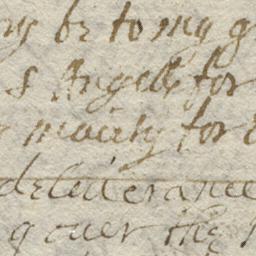 ry be to my g
s Angells for
mercy for
deliuerance
g ouer the